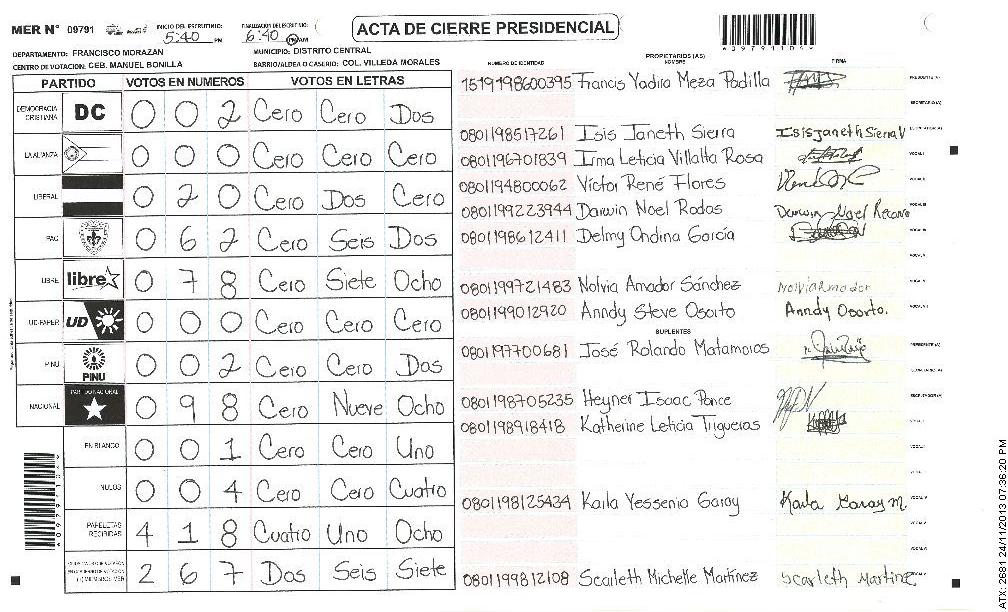 MER N° 09791
INICIO DEL ESCRUTINIO: 5:40 PM
FINALIZACION DEL ESCRUTINIO: 6:40 PM
ACTA DE CIERRE PRESIDENCIAL
DEPARTAMENTO: FRANCISCO MORAZAN
MUNICIPIO: DISTRITO CENTRAL
CENTRO DE VOTACION: CEB. MANUEL BONILLA
BARRIO/ALDEA O CASERIO: COL. VILLEDA MORALES
PARTIDO VOTOS EN NUMEROS VOTOS EN LETRAS
DEMOCRACIA CRISTIANA DC 0 0 2 Cero Cero Dos
LA ALIANZA 0 0 0 Cero Cero Cero
LIBERAL 0 2 0 Cero Dos Cero
PAC 0 6 2 Cero Seis Dos
LIBRE libre 0 7 8 Cero Siete Ocho
UD-FAPER UD 0 0 0 Cero Cero Cero
PINU PINU 0 0 2 Cero Cero Dos
NACIONAL PARTIDO NACIONAL 0 9 8 Cero Nueve Ocho
EN BLANCO 0 0 1 Cero Cero Uno
NULOS 0 0 4 Cero Cero Cuatro
PAPELETAS RECIBIDAS 4 1 8 Cuatro Uno Ocho
2 6 7 Dos Seis Siete
PROPIETARIOS (AS)
NUMERO DE IDENTIDAD NOMBRE FIRMA
1519198600395 Francis Yadira Meza Padilla PRESIDENTE (A)
SECRETARIO (A)
0801198517261 Isis Janeth Sierra Isis janeth Sierra V ESCRUTADOR (A)
0801196701839 Irma Leticia Villalta Rosa VOCAL I
0801194800062 Víctor René Flores VOCAL II
0801199223944 Darwin Noel Rodas Darwin Noel VOCAL III
0801198612411 Delmy Ondina García VOCAL IV
VOCAL V
0801199721483 Nolvia Amador Sánchez Nolvia Amador
0801199012920 Anndy Steve Osorto Anndy Osorto.
SUPLENTES
0801197700681 José Rolando Matamoros PRESIDENTE (A)
SECRETARIO (A)
0801198705235 Heyner Isaac Ponce ESCRUTADOR (A)
0801198918418 Katherine Leticia Trigueros VOCAL I
0801198125434 Karla Yessenia Garay Karla Garay M
0801199812108 Scarleth Michelle Martínez Scarleth Martínez
ATX: 2681 24/11/2013 07:36:20 PM